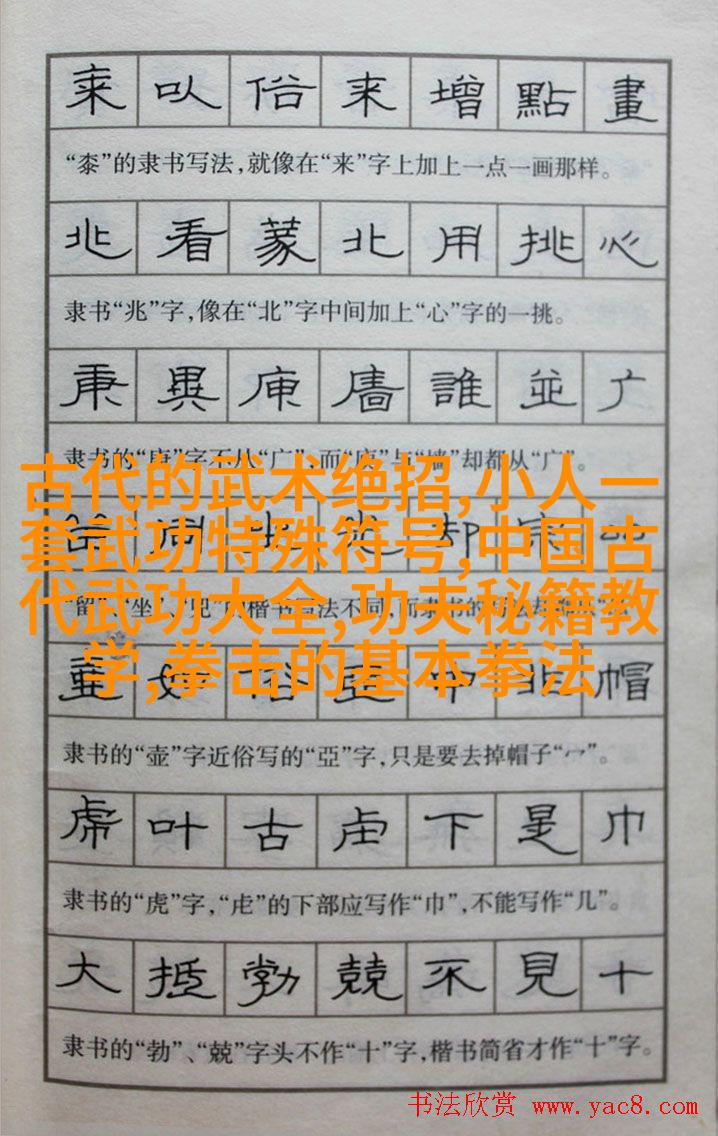 桼 㕥 俗 来 增 點 畫
“桼”的隶书写法,就像在“来”字上加上一点一画那样。
兆 看 蒙 北 用 挑 心
隶书“兆”字,像在“北”字中间加上“心”字的一挑。
庚 異 庾 廧 誰 並 广
隶书的“庚”字不从“广”,而“庾”与“墙”却都从“广”。
古代的武术绝招,小人一
套武功特殊符号,中国古
代武功大全,功夫秘籍教
学,拳击的基本拳法
同 却 宗
“留”、“坐”、“兒”的楷书写法不同,而隶书的写法却
壷 如 俗 亞 中 非 帽
隶书的“壶”字近俗写的“亞”字,只是要去掉帽子“冖”。
虎 叶 古 虍 下 是 巾
隶书的“虎”字,“虍”的下部应写作“巾”,不能写作“几”。
大 抵 勃 兢 不 見 十
隶书的“勃”、“兢”字头不作“十”字,楷书简省才作“十”字。
书法欣赏 www.yac8.com